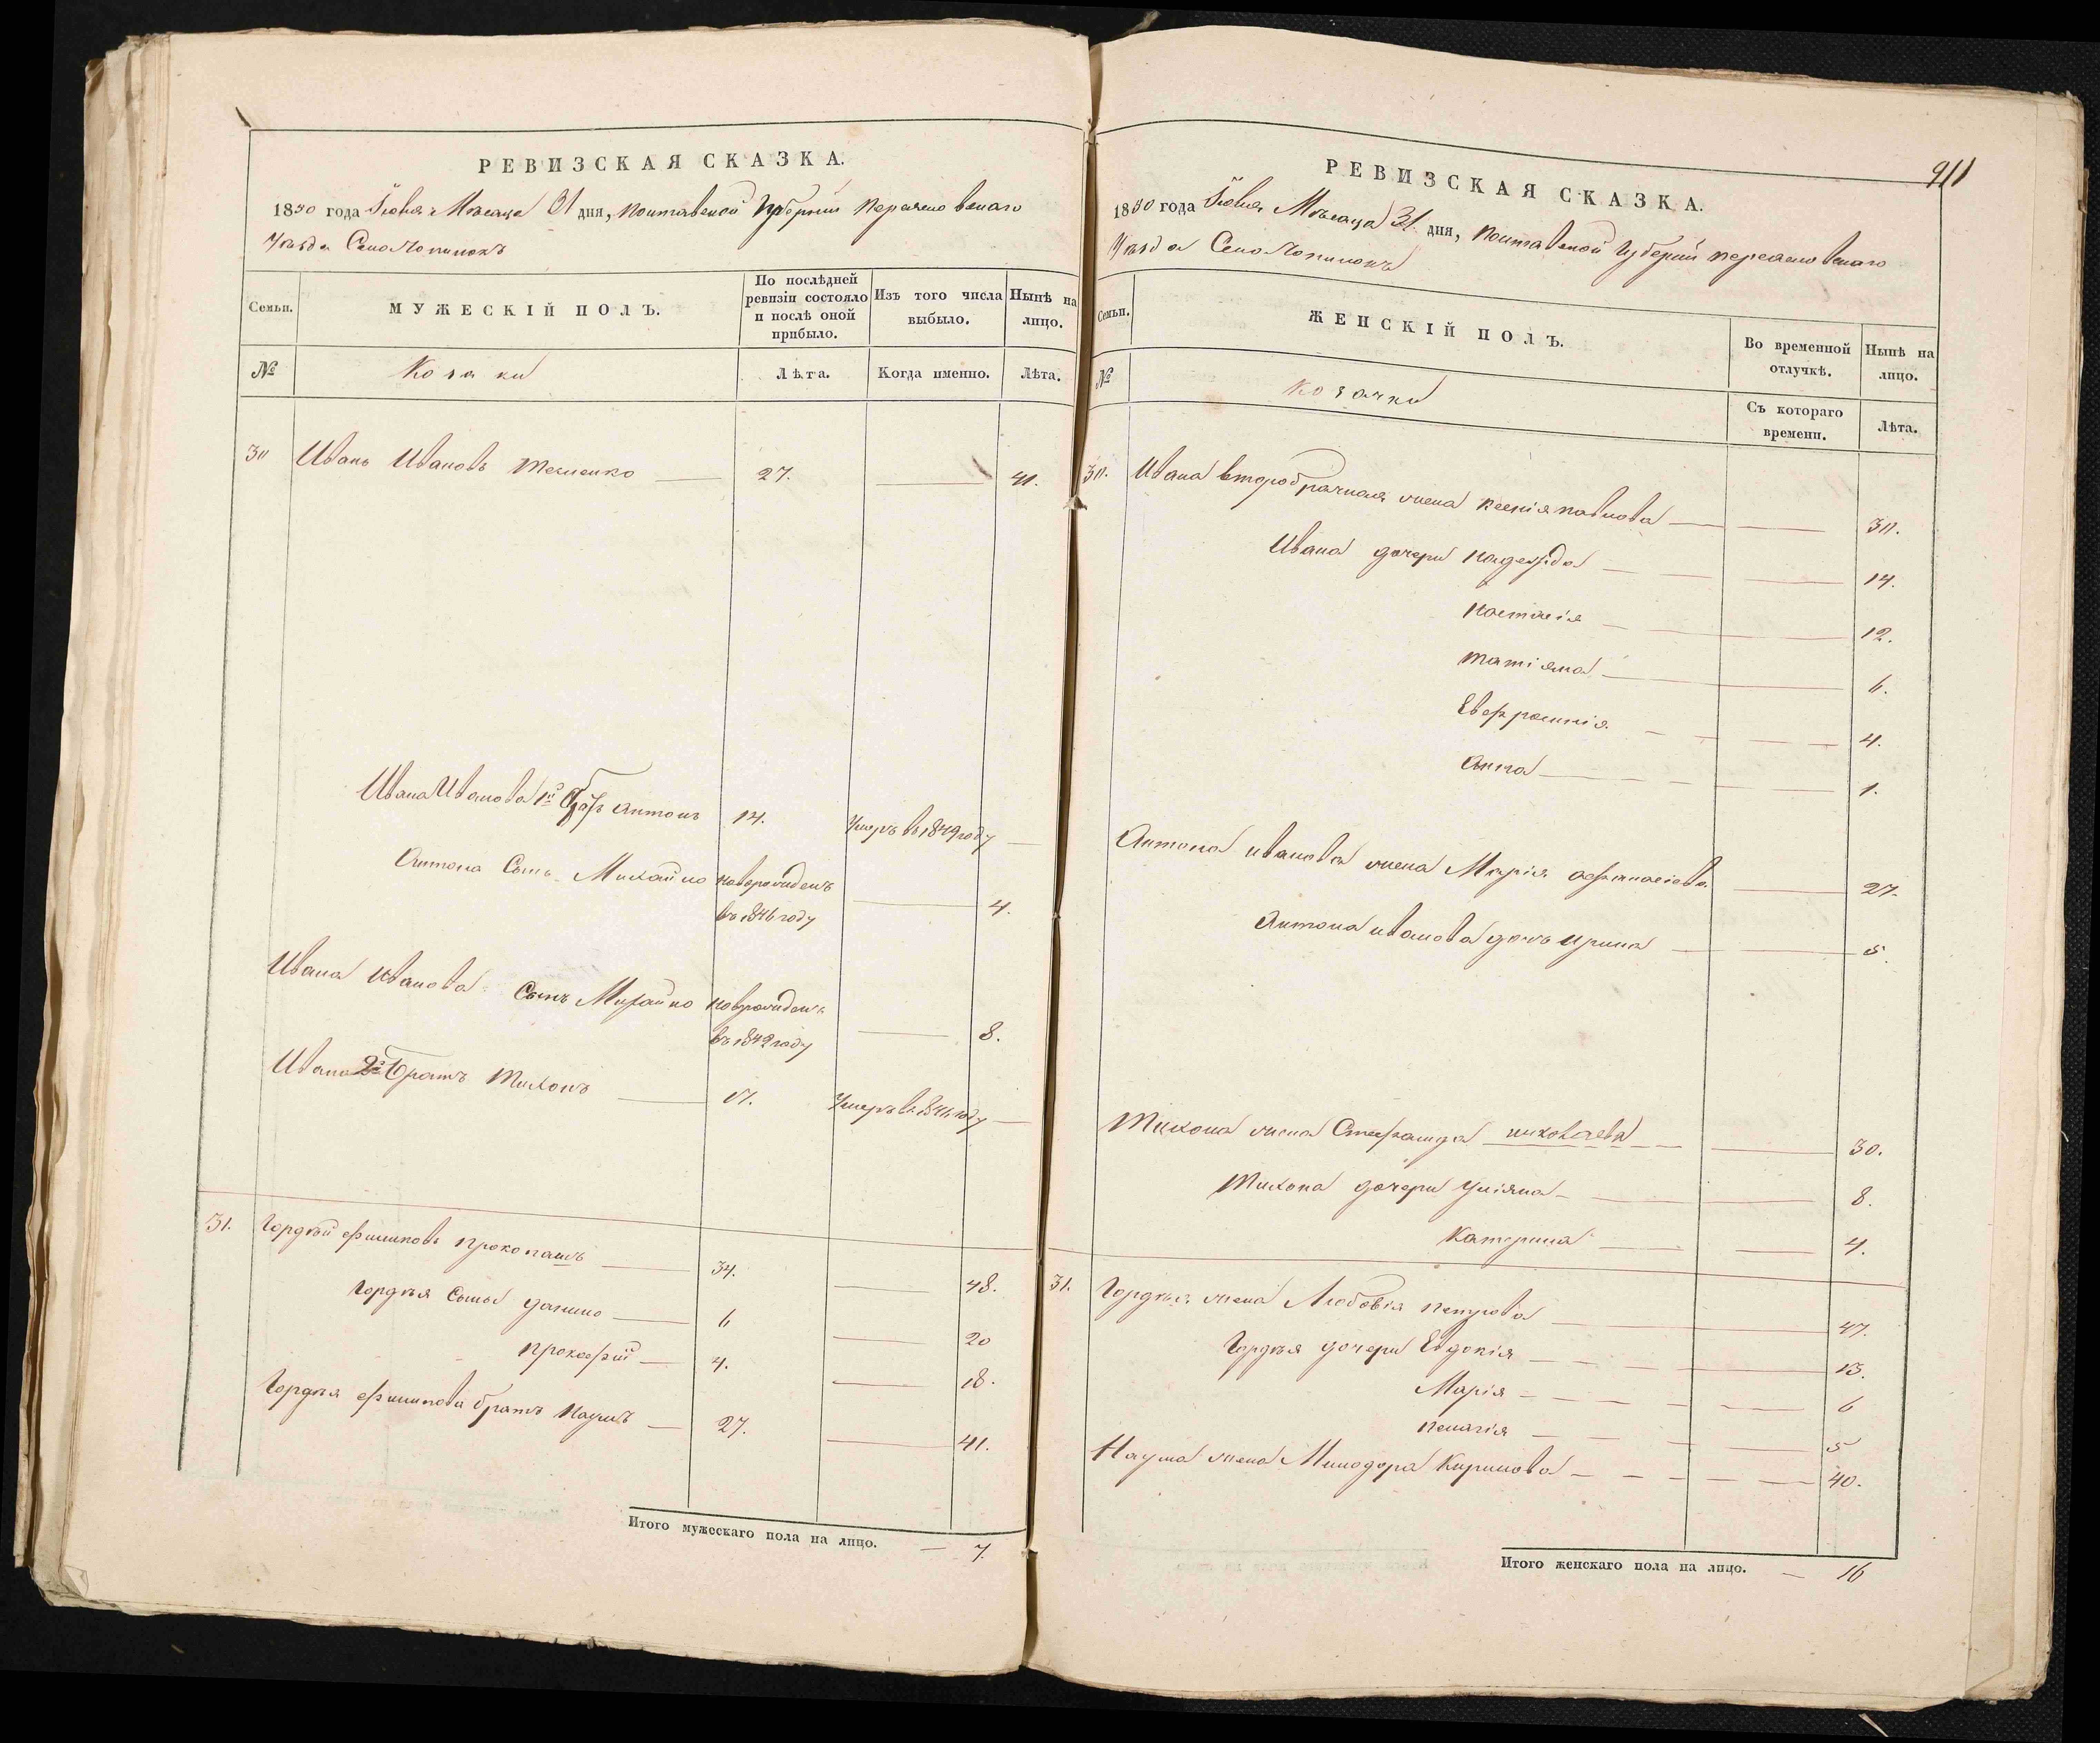 РЕВИЗСКАЯ СКАЗКА.
1850 года Іюля Мѣсяца 31 дня, Полтавской Губерніи Переясловскаго
Уѣзда Села
Семьи. МУЖЕСКІЙ ПОЛЪ. По послѣдней ревизіи состояло и послѣ оной прибыло. Изъ того числа выбыло. Нынѣ на лицо.
№ Козаки Лѣта. Когда именно. Лѣта.
30 Иванъ Ивановъ 27. 41.
Ивана Иванова 1й братъ Антонъ 14. Умеръ въ 1849 году
Антона Сынъ Михайло новорожденъ 4.
въ 1846 году
Ивана Иванова Сынъ Михайло новорожденъ
въ 1842 году 8.
Ивана 2й братъ Тихонъ Умеръ въ году
31. Гордѣй Филиповъ 34. 48.
Гордѣя Сыны Данило 6 20
Прокофій 4. 18.
Гордѣя Филипова братъ Наумъ 27. 41.
Итого мужескаго пола на лицо. 7.
911
РЕВИЗСКАЯ СКАЗКА.
1850 года Іюля Мѣсяца 31 дня, Полтавской Губерніи Переясловскаго
Уѣзда Села
Семьи. ЖЕНСКІЙ ПОЛЪ. Во временной отлучкѣ. Нынѣ на лицо.
№ Козачки Съ котораго времени. Лѣта.
30. Ивана второбрачная жена Ксенія Павлова
Ивана дочери Надежда 14.
Настасія 12.
Татіяна 6.
Евфросинія 4.
Анна 1.
Антона Иванова жена Марія Афанасіева 27.
Антона Иванова дочь Ирина 5.
Тихона жена Стефанида Николаева 30.
Тихона дочери Уліяна 8.
Катерина 4.
31. Гордѣя жена Любовія Петрова 47.
Гордѣя дочери Евдокія 13.
Марія 6
Пелагія 5
Наума жена Минодора Кирилова 40.
Итого женскаго пола на лицо. 16